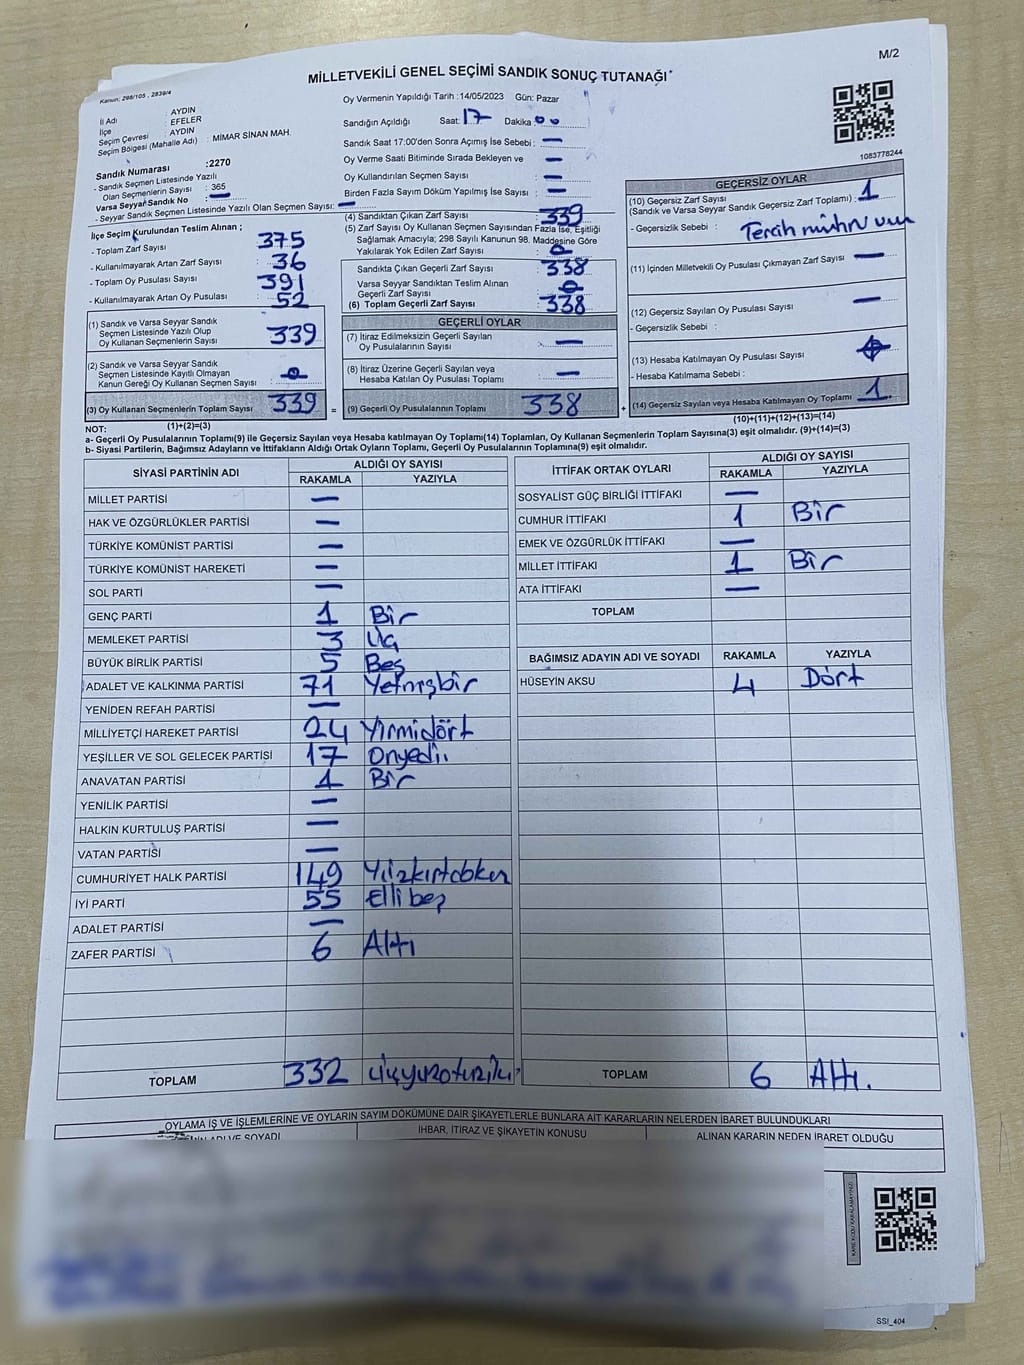 M/2
MİLLETVEKİLİ GENEL SEÇİMİ SANDIK SONUÇ TUTANAĞI
Kanun: 298/105 , 2839/4
İl Adı : AYDIN
İlçe : EFELER
Seçim Çevresi : AYDIN
Seçim Bölgesi (Mahalle Adı) : MİMAR SİNAN MAH.
Sandık Numarası :2270
- Sandık Seçmen Listesinde Yazılı
Olan Seçmenlerin Sayısı : 365
Varsa Seyyar Sandık No : —
- Seyyar Sandık Seçmen Listesinde Yazılı Olan Seçmen Sayısı: —
Oy Vermenin Yapıldığı Tarih :14/05/2023 Gün: Pazar
Sandığın Açıldığı Saat: 17 Dakika 00
Sandık Saat 17:00'den Sonra Açımış İse Sebebi : —
Oy Verme Saati Bitiminde Sırada Bekleyen ve —
Oy Kullandırılan Seçmen Sayısı : —
Birden Fazla Sayım Döküm Yapılmış İse Sayısı : —
1083778244
İlçe Seçim Kurulundan Teslim Alınan ;
- Toplam Zarf Sayısı : 375
- Kullanılmayarak Artan Zarf Sayısı : 36
- Toplam Oy Pusulası Sayısı : 391
- Kullanılmayarak Artan Oy Pusulası : 52
(1) Sandık ve Varsa Seyyar Sandık
Seçmen Listesinde Yazılı Olup
Oy Kullanan Seçmenlerin Sayısı : 339
(2) Sandık ve Varsa Seyyar Sandık
Seçmen Listesinde Kayıtlı Olmayan
Kanun Gereği Oy Kullanan Seçmen Sayısı : 0
(3) Oy Kullanan Seçmenlerin Toplam Sayısı 339 =
(1)+(2)=(3)
(4) Sandıktan Çıkan Zarf Sayısı : 339
(5) Zarf Sayısı Oy Kullanan Seçmen Sayısından Fazla İse, Eşitliği
Sağlamak Amacıyla; 298 Sayılı Kanunun 98. Maddesine Göre
Yakılarak Yok Edilen Zarf Sayısı : 0
Sandıkta Çıkan Geçerli Zarf Sayısı : 338
Varsa Seyyar Sandıktan Teslim Alınan
Geçerli Zarf Sayısı : 0
(6) Toplam Geçerli Zarf Sayısı : 338
GEÇERLİ OYLAR
(7) İtiraz Edilmeksizin Geçerli Sayılan
Oy Pusulalarının Sayısı : —
(8) İtiraz Üzerine Geçerli Sayılan veya
Hesaba Katılan Oy Pusulası Toplamı : —
(9) Geçerli Oy Pusulalarının Toplamı 338 +
GEÇERSİZ OYLAR
(10) Geçersiz Zarf Sayısı
(Sandık ve Varsa Seyyar Sandık Geçersiz Zarf Toplamı) : 1
- Geçersizlik Sebebi : Tercih mührü
(11) İçinden Milletvekili Oy Pusulası Çıkmayan Zarf Sayısı : —
(12) Geçersiz Sayılan Oy Pusulası Sayısı : —
- Geçersizlik Sebebi :
(13) Hesaba Katılmayan Oy Pusulası Sayısı
- Hesaba Katılmama Sebebi :
(14) Geçersiz Sayılan veya Hesaba Katılmayan Oy Toplamı 1
(10)+(11)+(12)+(13)=(14)
NOT:
a- Geçerli Oy Pusulalarının Toplamı(9) ile Geçersiz Sayılan veya Hesaba katılmayan Oy Toplamı(14) Toplamları, Oy Kullanan Seçmenlerin Toplam Sayısına(3) eşit olmalıdır. (9)+(14)=(3)
b- Siyasi Partilerin, Bağımsız Adayların ve İttifakların Aldığı Oyların Toplamı, Geçerli Oy Pusulalarının Toplamına(9) eşit olmalıdır.
SİYASİ PARTİNİN ADI ALDIĞI OY SAYISI
RAKAMLA YAZIYLA
MİLLET PARTİSİ —
HAK VE ÖZGÜRLÜKLER PARTİSİ —
TÜRKİYE KOMÜNİST PARTİSİ —
TÜRKİYE KOMÜNİST HAREKETİ —
SOL PARTİ —
GENÇ PARTİ 1 Bir
MEMLEKET PARTİSİ 3 Üç
BÜYÜK BİRLİK PARTİSİ 5 Beş
ADALET VE KALKINMA PARTİSİ 71 Yetmişbir
YENİDEN REFAH PARTİSİ —
MİLLİYETÇİ HAREKET PARTİSİ 24 Yirmidört
YEŞİLLER VE SOL GELECEK PARTİSİ 17 Onyedi
ANAVATAN PARTİSİ 1 Bir
YENİLİK PARTİSİ —
HALKIN KURTULUŞ PARTİSİ —
VATAN PARTİSİ —
CUMHURİYET HALK PARTİSİ 149
İYİ PARTİ 55 Ellibeş
ADALET PARTİSİ —
ZAFER PARTİSİ 6 Altı
TOPLAM 332
İTTİFAK ORTAK OYLARI ALDIĞI OY SAYISI
RAKAMLA YAZIYLA
SOSYALİST GÜÇ BİRLİĞİ İTTİFAKI —
CUMHUR İTTİFAKI 1 Bir
EMEK VE ÖZGÜRLÜK İTTİFAKI —
MİLLET İTTİFAKI 1 Bir
ATA İTTİFAKI —
TOPLAM
BAĞIMSIZ ADAYIN ADI VE SOYADI RAKAMLA YAZIYLA
HÜSEYİN AKSU 4 Dört
TOPLAM 6 Altı.
OYLAMA İŞ VE İŞLEMLERİNE VE OYLARIN SAYIM DÖKÜMÜNE DAİR ŞİKAYETLERLE BUNLARA AİT KARARLARIN NELERDEN İBARET BULUNDUKLARI
ADI VE SOYADI İHBAR, İTİRAZ VE ŞİKAYETİN KONUSU ALINAN KARARIN NEDEN İBARET OLDUĞU
SSI_404